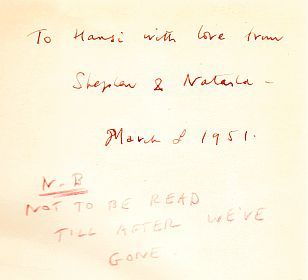 To Hansi with love from
Stephen & Natasha -
March 8 1951.
N.B
NOT TO BE READ
TILL AFTER WE'VE
GONE.